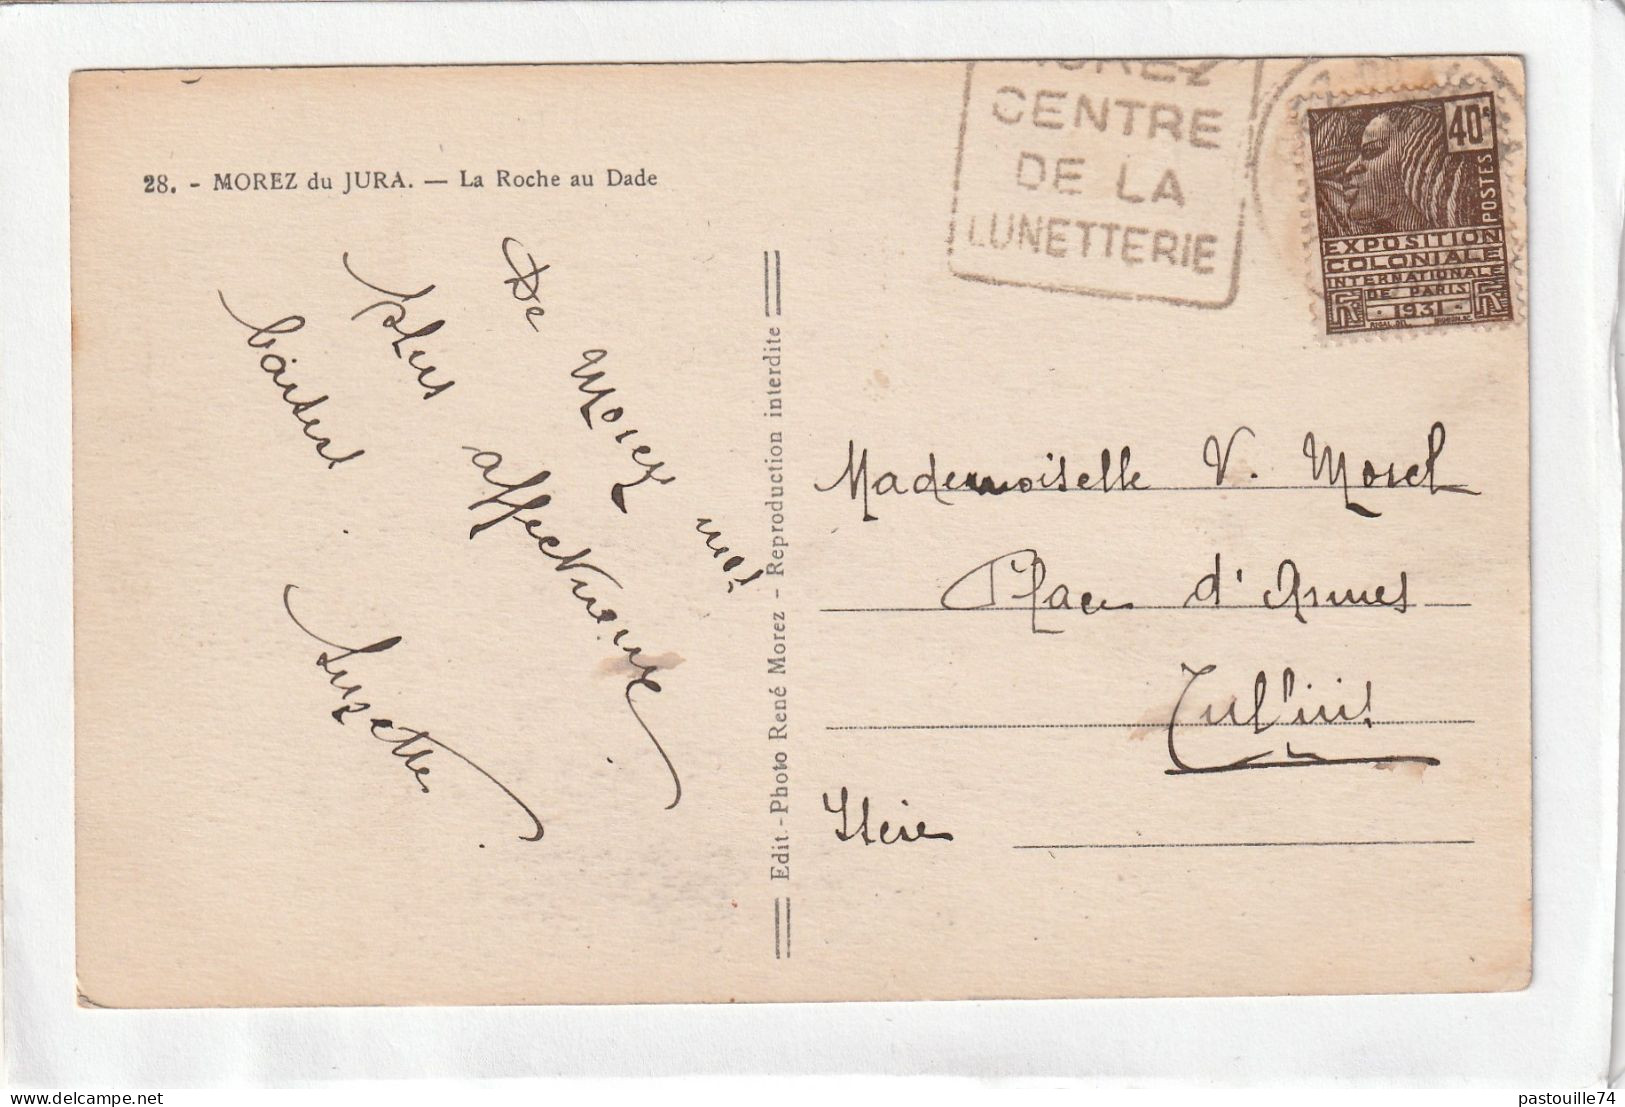 28. - MOREZ du JURA. — La Roche au Dade
MOREZ
CENTRE
DE LA
LUNETTERIE
40c
POSTES
EXPOSITION
COLONIALE
INTERNATIONALE
DE PARIS
1931
De Morez mes
plus affectueux
baisers.
Suzette
Edit.-Photo René Morez - Reproduction interdite
Mademoiselle V. Morel
Place d'Armes
Tullins
Isère
pastouille74